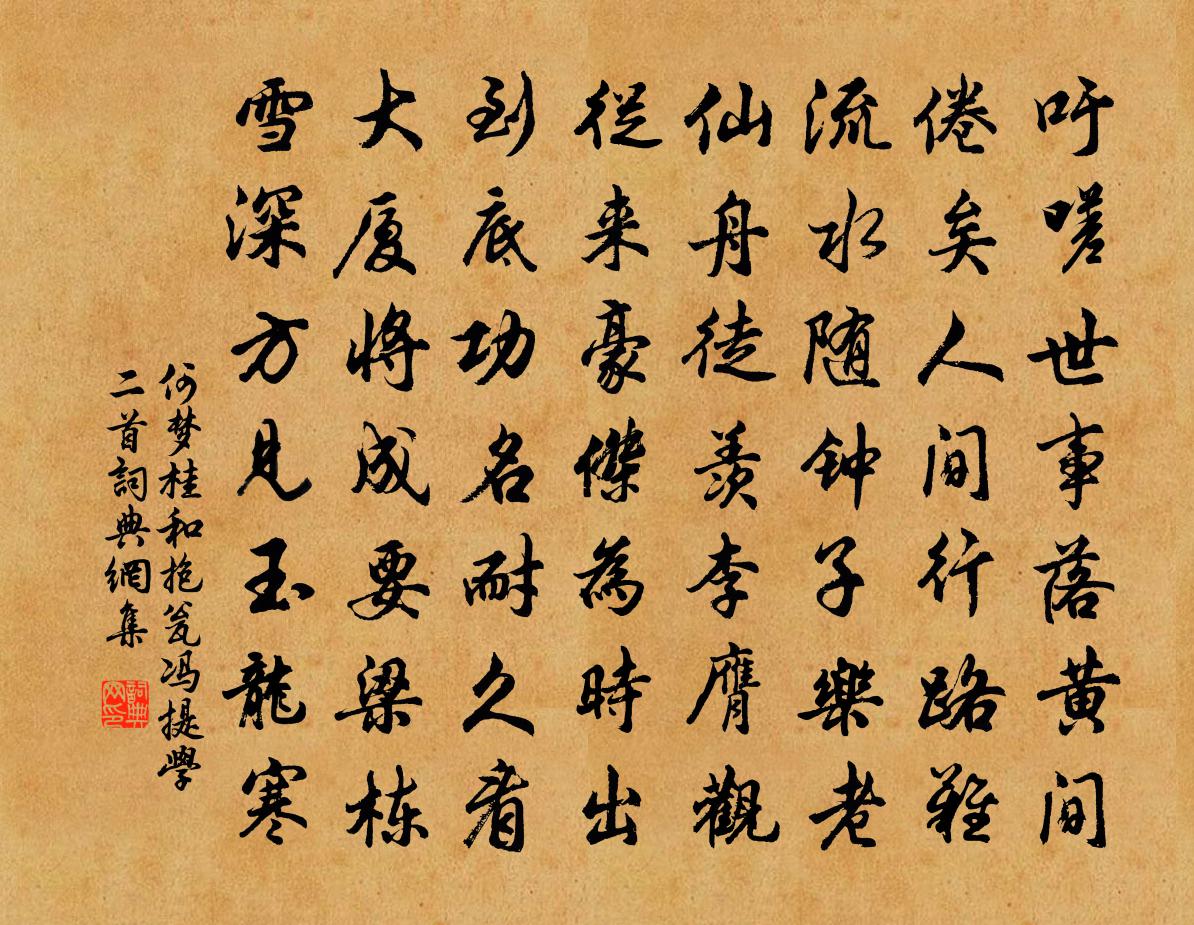 吁嗟世事落黄间
倦矣人间行路難
流水随钟子樂老
仙舟徒羨李膺觀
從来豪傑為時出
到底功名耐久看
大厦将成要梁栋
雪深方見玉龍寒
何梦桂和抱瓮冯提學
二首詞典網集
詞典
网印